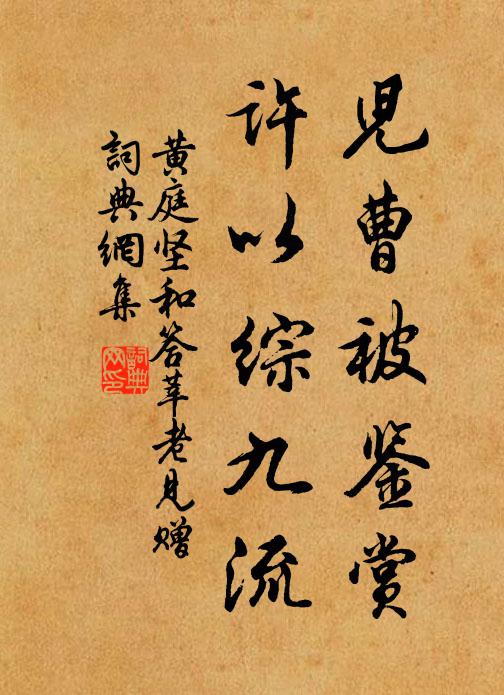 児曹被鉴赏
许以综九流
黄庭坚和答莘老见赠
詞典網集
詞典网印